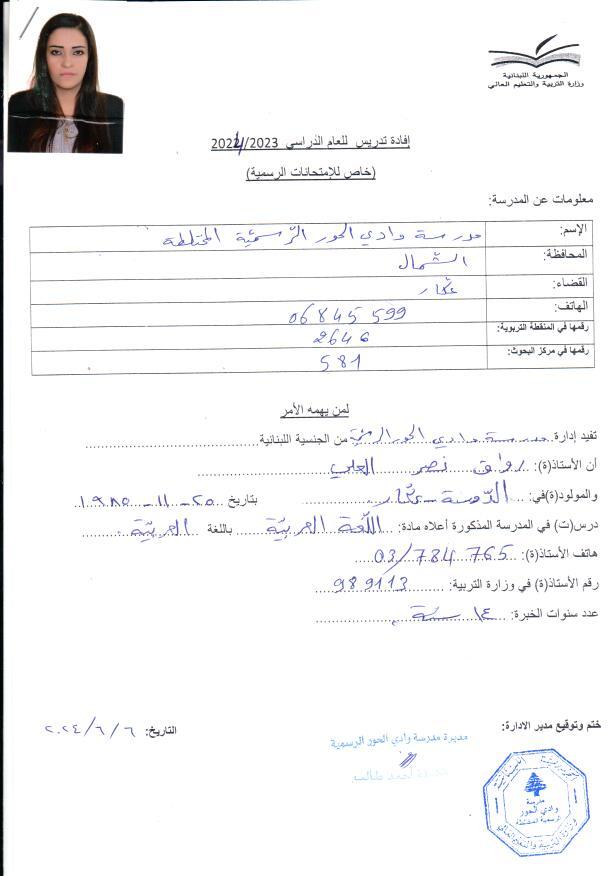 الجمهورية اللبنانية
وزارة التربية والتعليم العالي
إفادة تدريس للعام الدراسي 2023/2024
(خاص للإمتحانات الرسمية)
معلومات عن المدرسة:
الإسم: مدرسة وادي الحور الرّسميّة المختلطة
المحافظة: الشّمال
القضاء: عكّار
الهاتف: 06845 599
رقمها في المنقطة التربوية: 2646
رقمها في مركز البحوث: 581
لمن يهمه الأمر
تفيد إدارة مدرسة وادي الحور الرسميّة من الجنسية اللبنانية
ان الأستاذ(ة): نصر العلي
والمولود(ة)في: عكّار بتاريخ ٢٥-١١-١٩٨٥
درس(ت) في المدرسة المذكورة أعلاه مادة: اللّغة العربيّة باللغة العربيّة
هاتف الأستاذ(ة): 03/784 765
رقم الأستاذ(ة) في وزارة التربية: 989113
عدد سنوات الخبرة: ١٤ سنة
ختم وتوقيع مدير الادارة:
التاريخ: ٢٠٢٤/٦/٦
مديرة مدرسة وادي الحور الرسمية
أحمد طالب
مدرسة
وادي الحور
الرسمية المختلطة
وزارة التربية والتعليم العالي